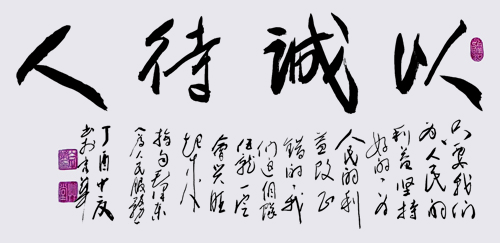 以誠待人
只要我们
为人民的
利益坚持
好的、为
人民的利
益改正
错的、我
们这個隊
伍就一定
會兴旺
起来
摘自毛泽东
《为人民服務》
丁酉